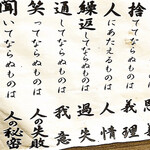 捨ててならぬものは 義理
人にあたえるものは 人情
繰返してならぬものは 過失
通してならぬものは 我意
笑ってならぬものは 人の失敗
聞いてならぬものは 人の秘密